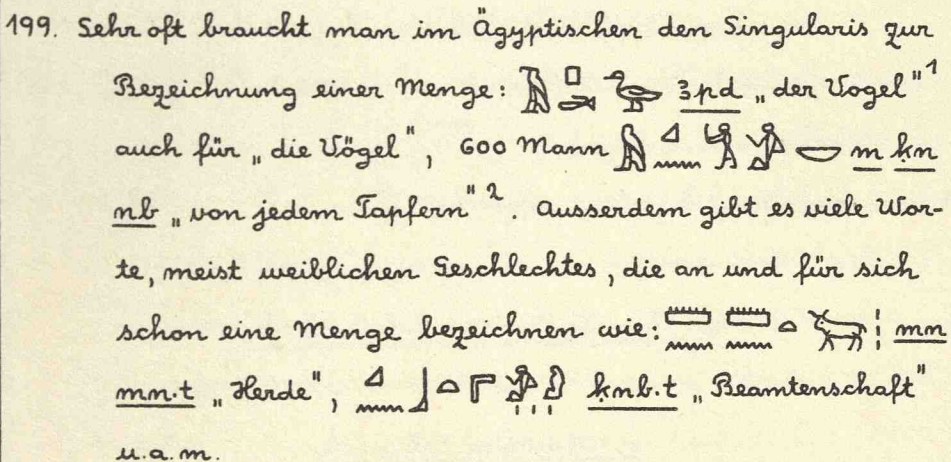 199. Sehr oft braucht man im Ägyptischen den Singularis zur
Bezeichnung einer Menge: 3pd „der Vogel"¹
auch für „die Vögel", 600 Mann m kn
nb „von jedem Tapfern"². Ausserdem gibt es viele Wor-
te, meist weiblichen Geschlechtes, die an und für sich
schon eine Menge bezeichnen wie: mn
mn.t „Herde", knb.t „Beamtenschaft"
u.a.m.